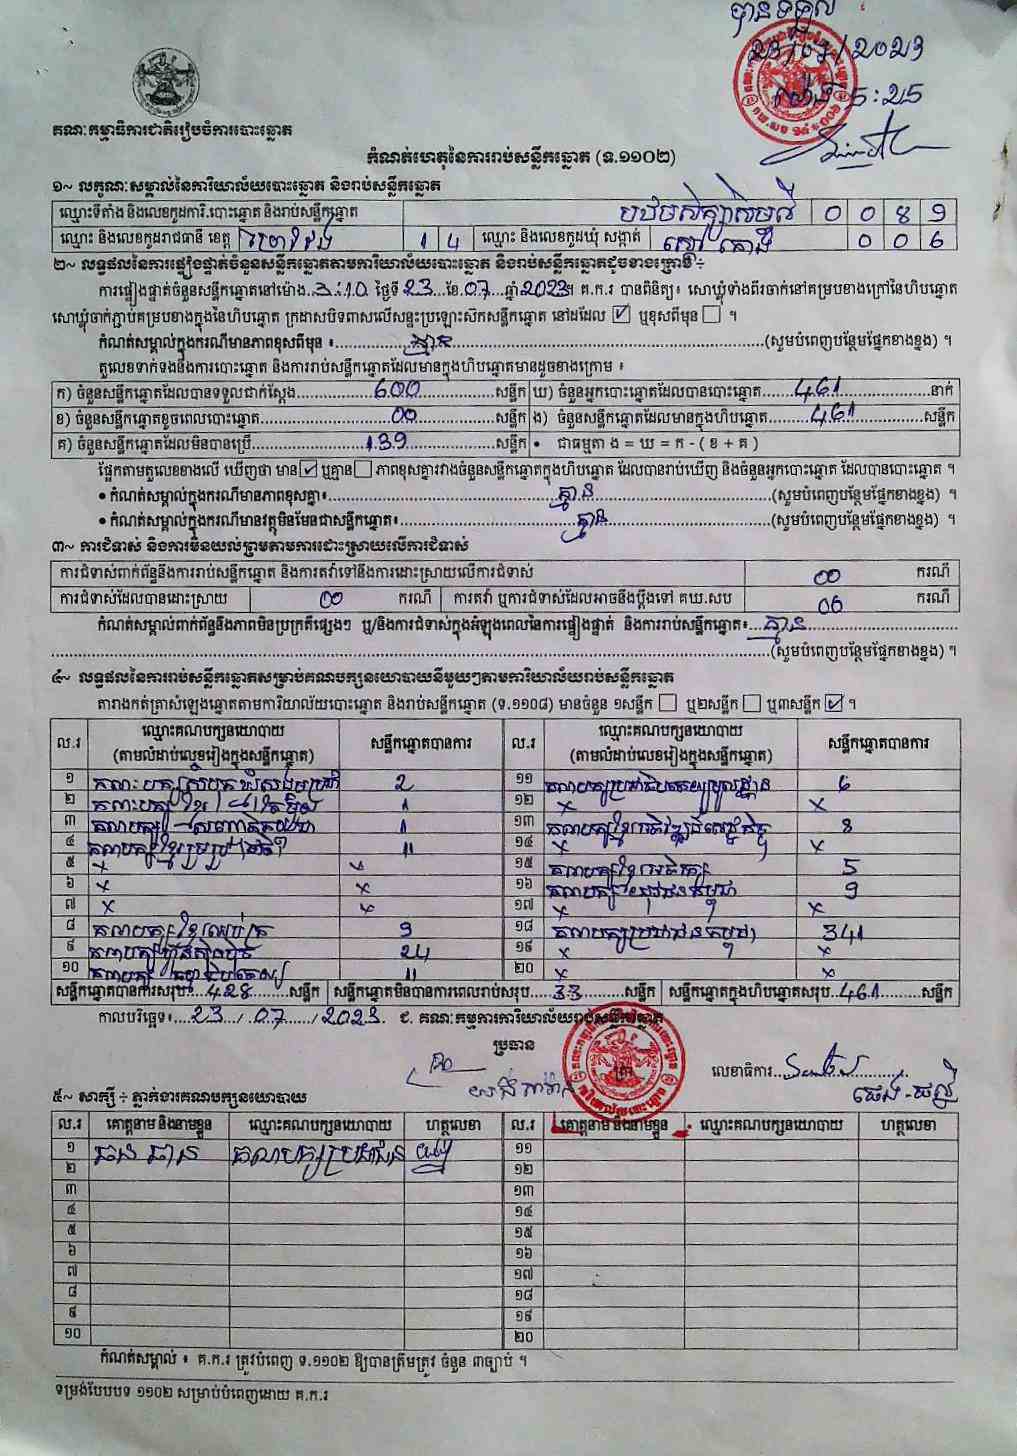 បានទទួល
23/07/2023
ម៉ោង 5:25
គណៈកម្មាធិការជាតិរៀបចំការបោះឆ្នោត
កំណត់ហេតុនៃការរាប់សន្លឹកឆ្នោត (ទ.១១០២)
១~ លក្ខណៈសម្គាល់នៃការិយាល័យបោះឆ្នោត និងរាប់សន្លឹកឆ្នោត
ឈ្មោះទីតាំង និងលេខកូដការិ.បោះឆ្នោត និងរាប់សន្លឹកឆ្នោត 0 0 8 9
ឈ្មោះ និងលេខកូដរាជធានី ខេត្ត ព្រៃវែង 1 4 ឈ្មោះ និងលេខកូដឃុំ សង្កាត់ 0 0 6
២~ លទ្ធផលនៃការផ្ទៀងផ្ទាត់ចំនួនសន្លឹកឆ្នោតតាមការិយាល័យបោះឆ្នោត និងរាប់សន្លឹកឆ្នោតដូចខាងក្រោម ៖
ការផ្ទៀងផ្ទាត់ចំនួនសន្លឹកឆ្នោតនៅម៉ោង 3:10 ថ្ងៃទី 23 ខែ 07 ឆ្នាំ 2023 ។ គ.ក.រ បានពិនិត្យ៖ សោឃ្លុំទាំងពីរចាក់នៅគម្របខាងក្រៅនៃហិបឆ្នោត
សោឃ្លុំចាក់ភ្ជាប់គម្របខាងក្នុងនៃហិបឆ្នោត ក្រដាសបិទពាសលើសន្ទះប្រឡោះសិកសន្លឹកឆ្នោត នៅដដែល ☑ ឬខុសពីមុន ☐ ។
កំណត់សម្គាល់ក្នុងករណីមានភាពខុសពីមុន ៖ គ្មាន (សូមបំពេញបន្ថែមផ្នែកខាងខ្នង) ។
តួលេខទាក់ទងនឹងការបោះឆ្នោត និងការរាប់សន្លឹកឆ្នោតដែលមានក្នុងហិបឆ្នោតមានដូចខាងក្រោម ៖
ក) ចំនួនសន្លឹកឆ្នោតដែលបានទទួលជាក់ស្តែង 600 សន្លឹក ឃ) ចំនួនអ្នកបោះឆ្នោតដែលបានបោះឆ្នោត 461 នាក់
ខ) ចំនួនសន្លឹកឆ្នោតខូចពេលបោះឆ្នោត 00 សន្លឹក ង) ចំនួនសន្លឹកឆ្នោតដែលមានក្នុងហិបឆ្នោត 461 សន្លឹក
គ) ចំនួនសន្លឹកឆ្នោតដែលមិនបានប្រើ 139 សន្លឹក • ជាធម្មតា ង = ឃ = ក - ( ខ + គ )
ផ្អែកតាមតួលេខខាងលើ ឃើញថា មាន ☑ ឬគ្មាន ☐ ភាពខុសគ្នារវាងចំនួនសន្លឹកឆ្នោតក្នុងហិបឆ្នោត ដែលបានរាប់ឃើញ និងចំនួនអ្នកបោះឆ្នោត ដែលបានបោះឆ្នោត ។
• កំណត់សម្គាល់ក្នុងករណីមានភាពខុសគ្នា៖ គ្មាន (សូមបំពេញបន្ថែមផ្នែកខាងខ្នង) ។
• កំណត់សម្គាល់ក្នុងករណីមានវត្ថុមិនមែនជាសន្លឹកឆ្នោត៖ គ្មាន (សូមបំពេញបន្ថែមផ្នែកខាងខ្នង) ។
៣~ ការជំទាស់ និងការមិនយល់ព្រមតាមការដោះស្រាយលើការជំទាស់
ការជំទាស់ពាក់ព័ន្ធនឹងការរាប់សន្លឹកឆ្នោត និងការតវ៉ាទៅនឹងការដោះស្រាយលើការជំទាស់ 00 ករណី
ការជំទាស់ដែលបានដោះស្រាយ 00 ករណី ការតវ៉ា ឬការជំទាស់ដែលអាចនឹងប្តឹងទៅ គឃ.សប 00 ករណី
កំណត់សម្គាល់ពាក់ព័ន្ធនឹងភាពមិនប្រក្រតីផ្សេងៗ ឬ/និងការជំទាស់ក្នុងអំឡុងពេលនៃការផ្ទៀងផ្ទាត់ និងការរាប់សន្លឹកឆ្នោត៖ គ្មាន
(សូមបំពេញបន្ថែមផ្នែកខាងខ្នង) ។
៤~ លទ្ធផលនៃការរាប់សន្លឹកឆ្នោតសម្រាប់គណបក្សនយោបាយនីមួយៗតាមការិយាល័យរាប់សន្លឹកឆ្នោត
តារាងកត់ត្រាសំឡេងឆ្នោតតាមការិយាល័យបោះឆ្នោត និងរាប់សន្លឹកឆ្នោត (ទ.១១០៨) មានចំនួន ១សន្លឹក ☐ ឬ២សន្លឹក ☐ ឬ៣សន្លឹក ☑ ។
ល.រ ឈ្មោះគណបក្សនយោបាយ (តាមលំដាប់លេខរៀងក្នុងសន្លឹកឆ្នោត) សន្លឹកឆ្នោតបានការ ល.រ ឈ្មោះគណបក្សនយោបាយ (តាមលំដាប់លេខរៀងក្នុងសន្លឹកឆ្នោត) សន្លឹកឆ្នោតបានការ
១ 2 ១១ គណបក្សប្រជាធិបតេយ្យមូលដ្ឋាន 6
២ 1 ១២ × ×
៣ 1 ១៣ គណបក្សខ្មែរអភិវឌ្ឍន៍សេដ្ឋកិច្ច 8
៤ គណបក្សខ្មែររួបរួមជាតិ 11 ១៤ × ×
៥ × × ១៥ 5
៦ × × ១៦ គណបក្សយុវជនកម្ពុជា 9
៧ × × ១៧ × ×
៨ 9 ១៨ គណបក្សប្រជាជនកម្ពុជា 341
៩ គណបក្សហ្វ៊ុនស៊ិនប៉ិច 24 ១៩ × ×
១០ 11 ២០ × ×
សន្លឹកឆ្នោតបានការសរុប 428 សន្លឹក សន្លឹកឆ្នោតមិនបានការពេលរាប់សរុប 33 សន្លឹក សន្លឹកឆ្នោតក្នុងហិបឆ្នោតសរុប 461 សន្លឹក
កាលបរិច្ឆេទ៖ 23 / 07 / 2023 ជ. គណៈកម្មការការិយាល័យរាប់សន្លឹកឆ្នោត
ប្រធាន
ត្រា
លេខាធិការ
៥~ សាក្សី ÷ ភ្នាក់ងារគណបក្សនយោបាយ
ល.រ គោត្តនាម និងនាមខ្លួន ឈ្មោះគណបក្សនយោបាយ ហត្ថលេខា ល.រ គោត្តនាម និងនាមខ្លួន ឈ្មោះគណបក្សនយោបាយ ហត្ថលេខា
១ គណបក្សប្រជាជន ១១
២ ១២
៣ ១៣
៤ ១៤
៥ ១៥
៦ ១៦
៧ ១៧
៨ ១៨
៩ ១៩
១០ ២០
កំណត់សម្គាល់ ៖ គ.ក.រ ត្រូវបំពេញ ទ.១១០២ ឱ្យបានត្រឹមត្រូវ ចំនួន ៣ច្បាប់ ។
ទម្រង់បែបបទ ១១០២ សម្រាប់បំពេញដោយ គ.ក.រ